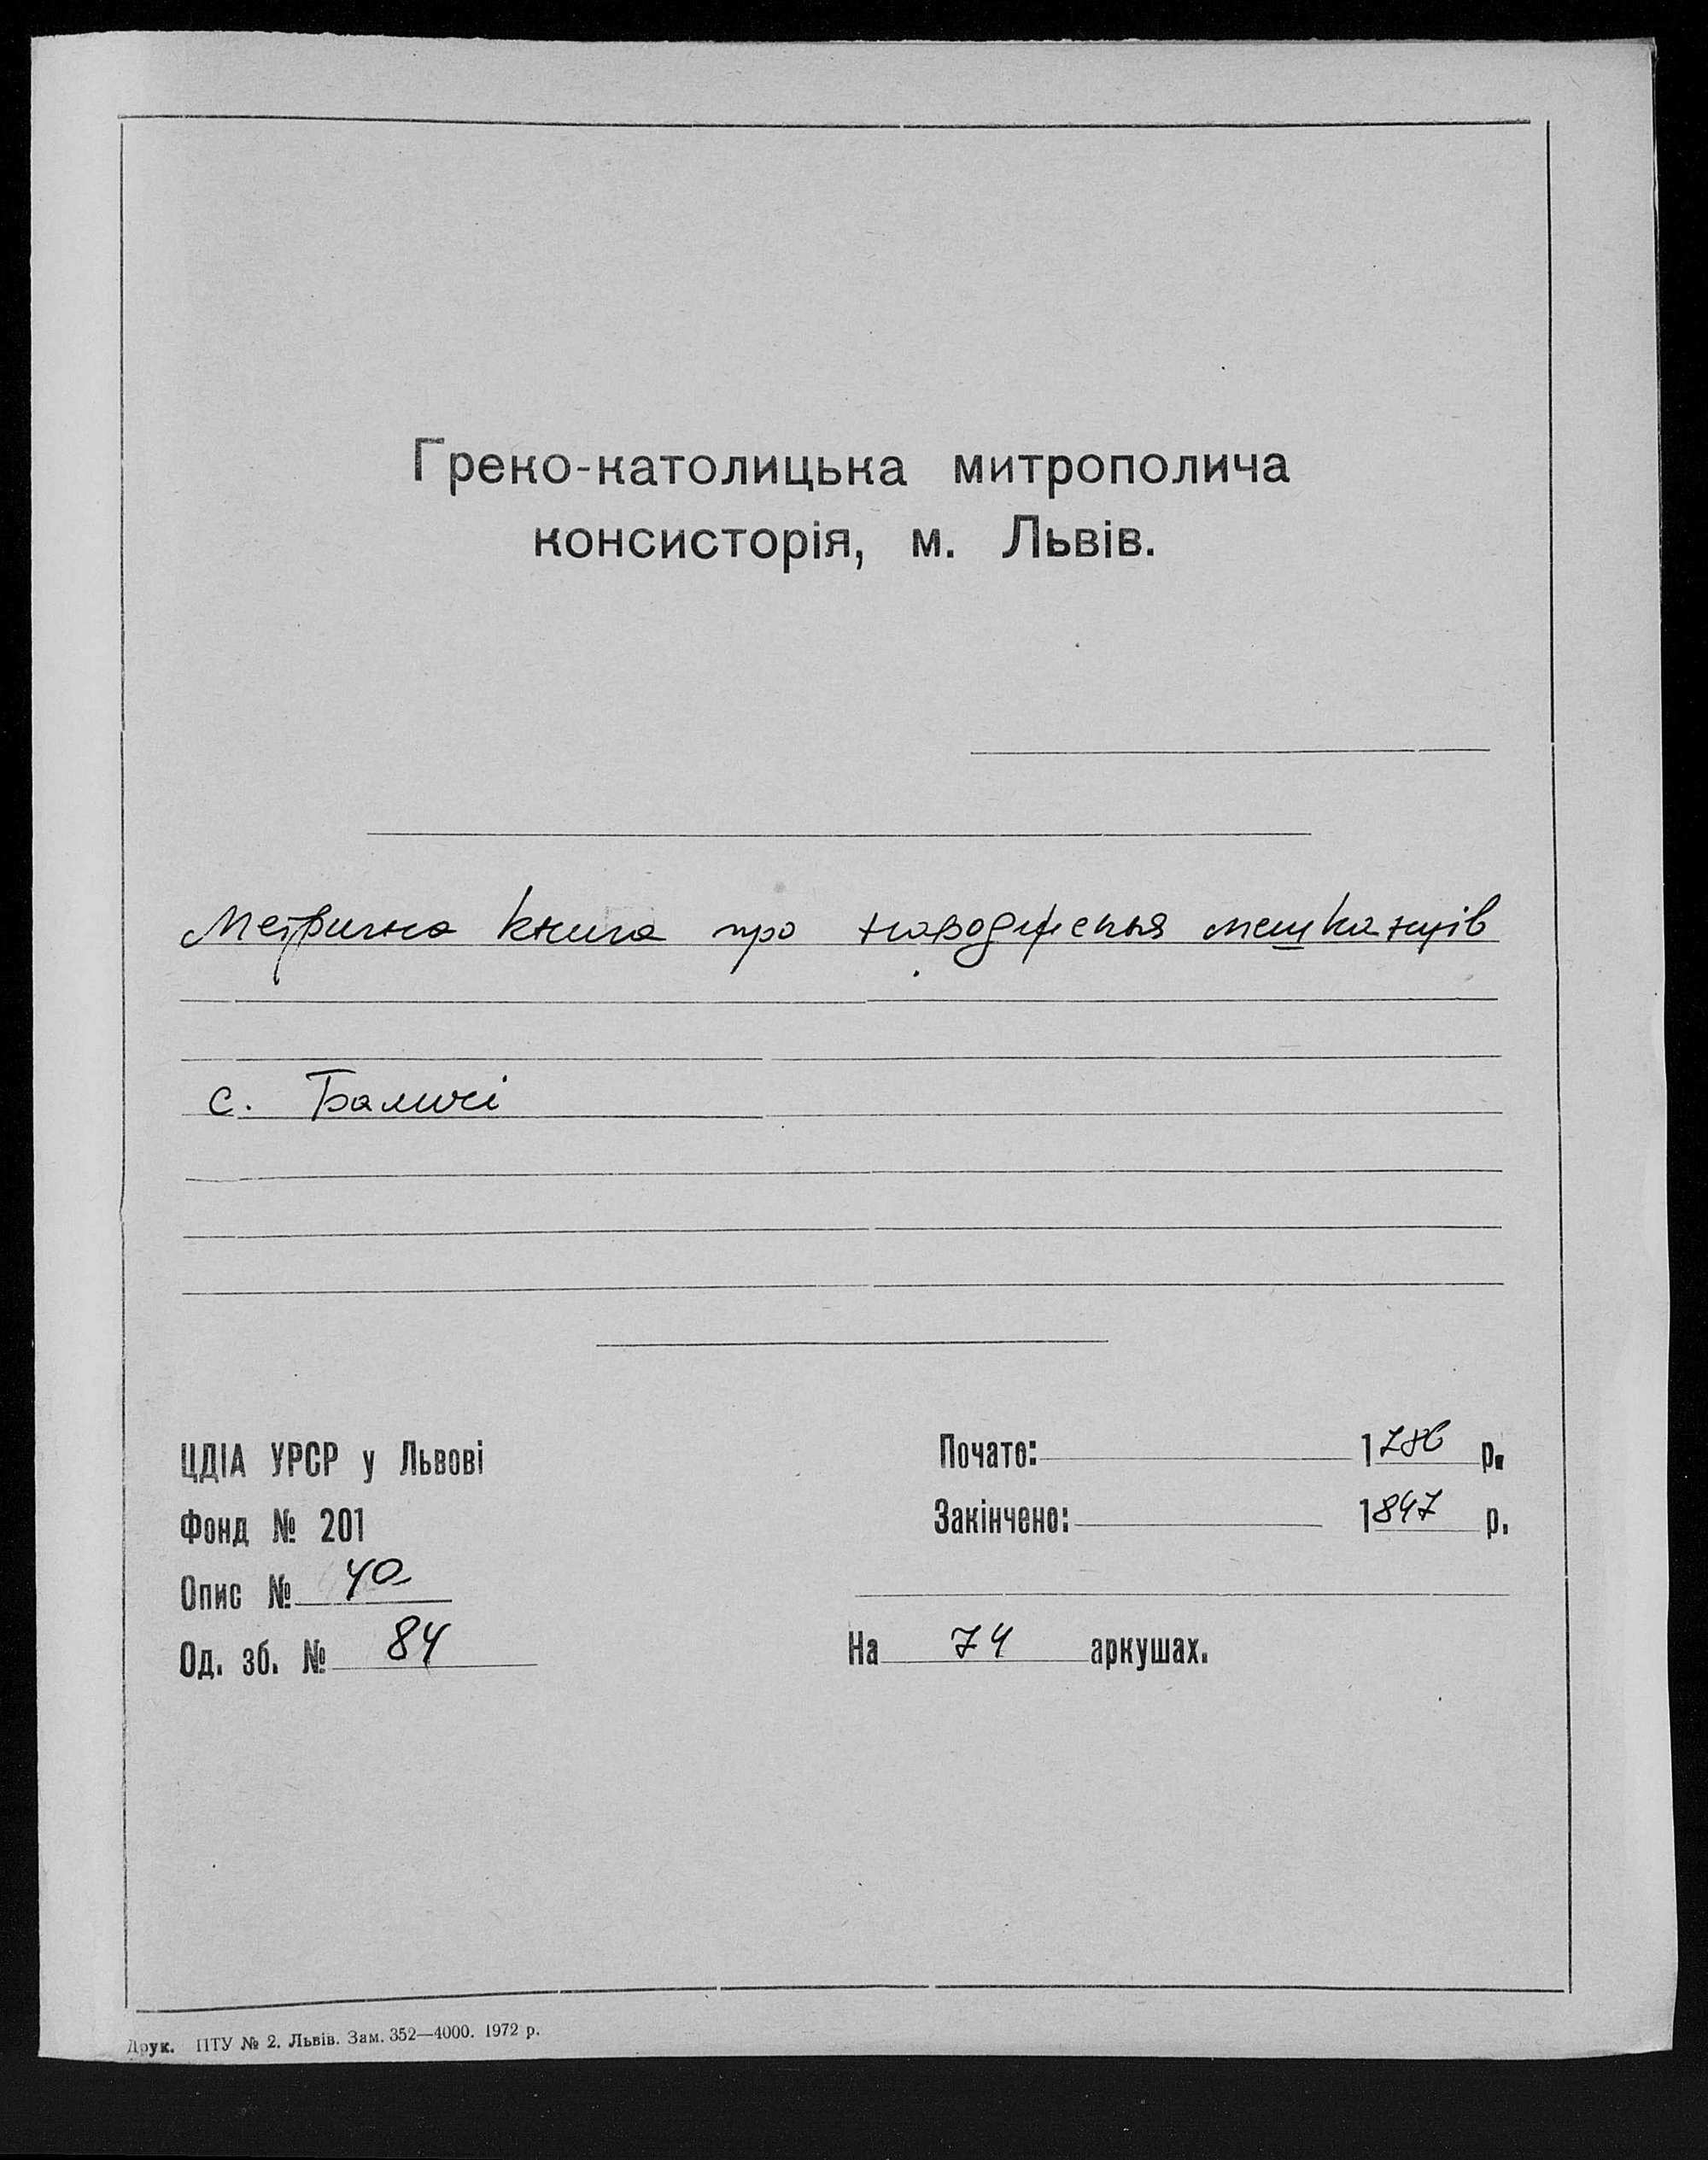 Греко-католицька митрополича
консисторія, м. Львів.
Метрична книга про народження мешканців
с. Баличі
ЦДІА УРСР у Львові
Фонд № 201
Опис № 4а
Од. зб. № 84
Почато: 1786 р.
Закінчено: 1847 р.
На 74 аркушах.
Друк. ПТУ № 2. Львів. Зам. 352—4000. 1972 р.